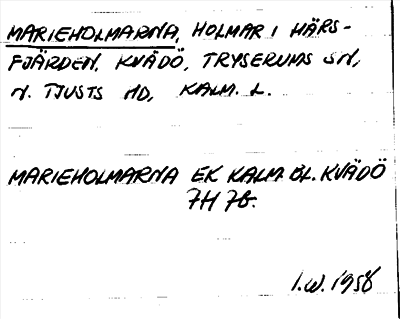 MARIEHOLMARNA, HOLMAR I HÄRS-
FJÄRDEN. KVÄDÖ, TRYSERUMS SN,
N. TJUSTS HD, KALM. L.
MARIEHOLMARNA EK KALM. BL. KVÄDÖ
7H 7b.
I.W. 1958